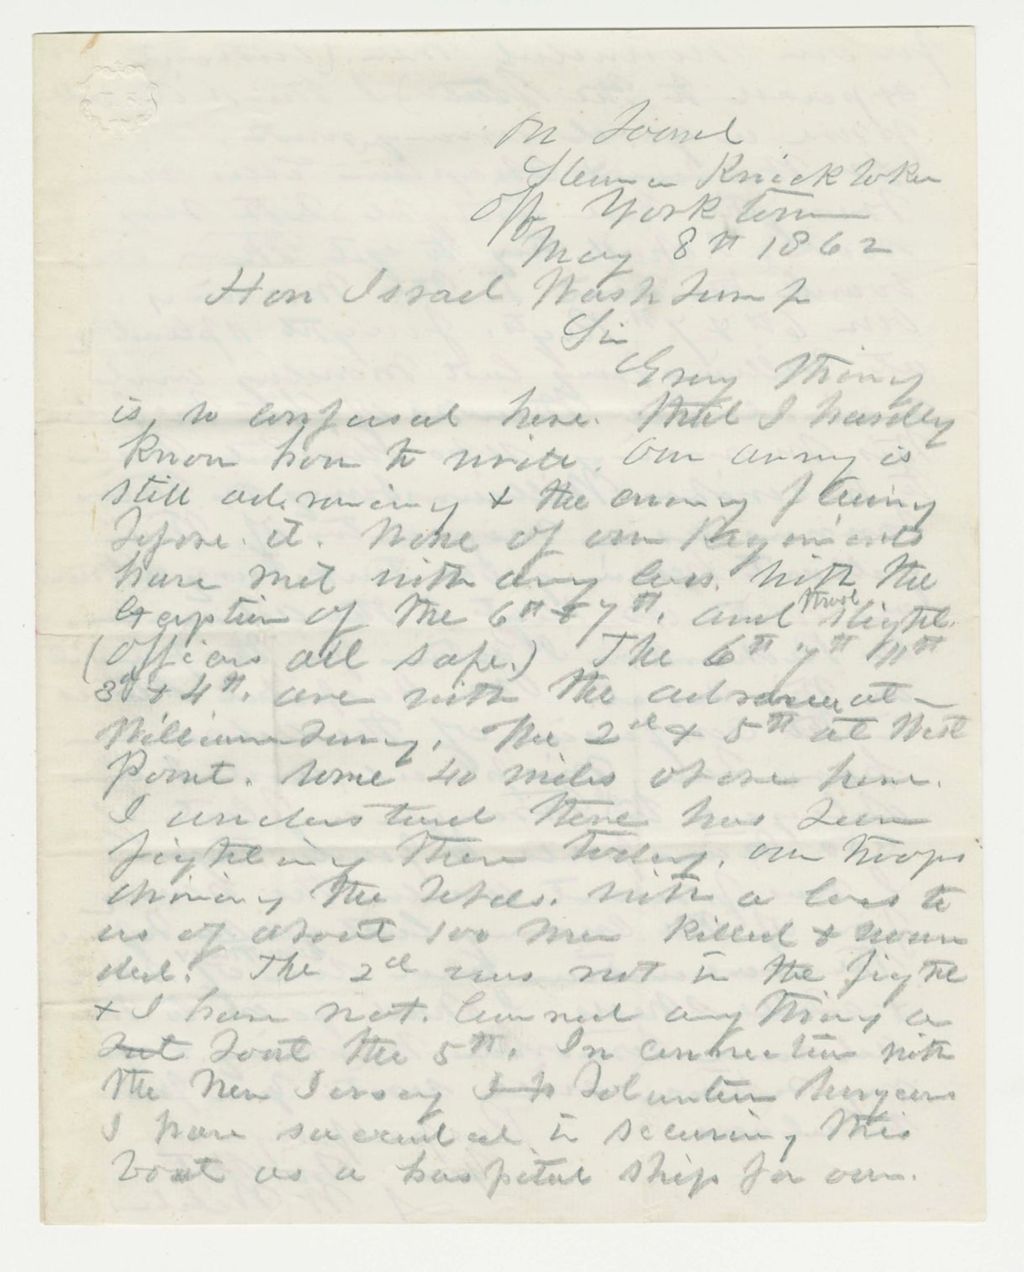 On Board
Steamer Knickboker
Off Yorktown
May 8th 1862
Hon Israel Washburn Jr
Sir
Every thing
is so confused here. that I hardly
know how to write. our army is
still advancing & the enemy fleeing
before it. None of our Regiments
have met with any loss. with the
exception of the 6th & 7th. and those slight.
(Officers all safe.) The 6th 7th 11th
3d & 4th. are with the advance at
Williamsburg. The 2d & 5th at West
Point. some 40 miles above here.
I understand there has been
fighting there today. our troops
driving the rebels. with a loss to
us of about 100 men killed & woun
ded. The 2d was not in the fight
& I have not. learned anything a
but bout the 5th. In connection with
the New Jersey Volunteer Surgeons
I have succeeded in securing this
boat as a hospital ship for our.